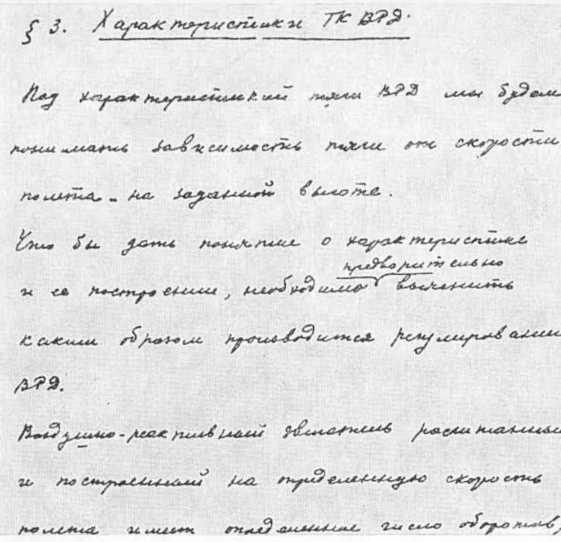 § 3. Характеристики ТК ВРД.
Под характеристикой тяги ВРД мы будем
понимать зависимость тяги от скорости
полета на заданной высоте.
Что бы дать понятие о характеристике
предворительно
и ее построение, необходимо выяснить
каким образом производится регулирование
ВРД.
Воздушно-реактивный двигатель расчитанный
и построенный на определенную скорость
полета имеет определенное число оборотов,